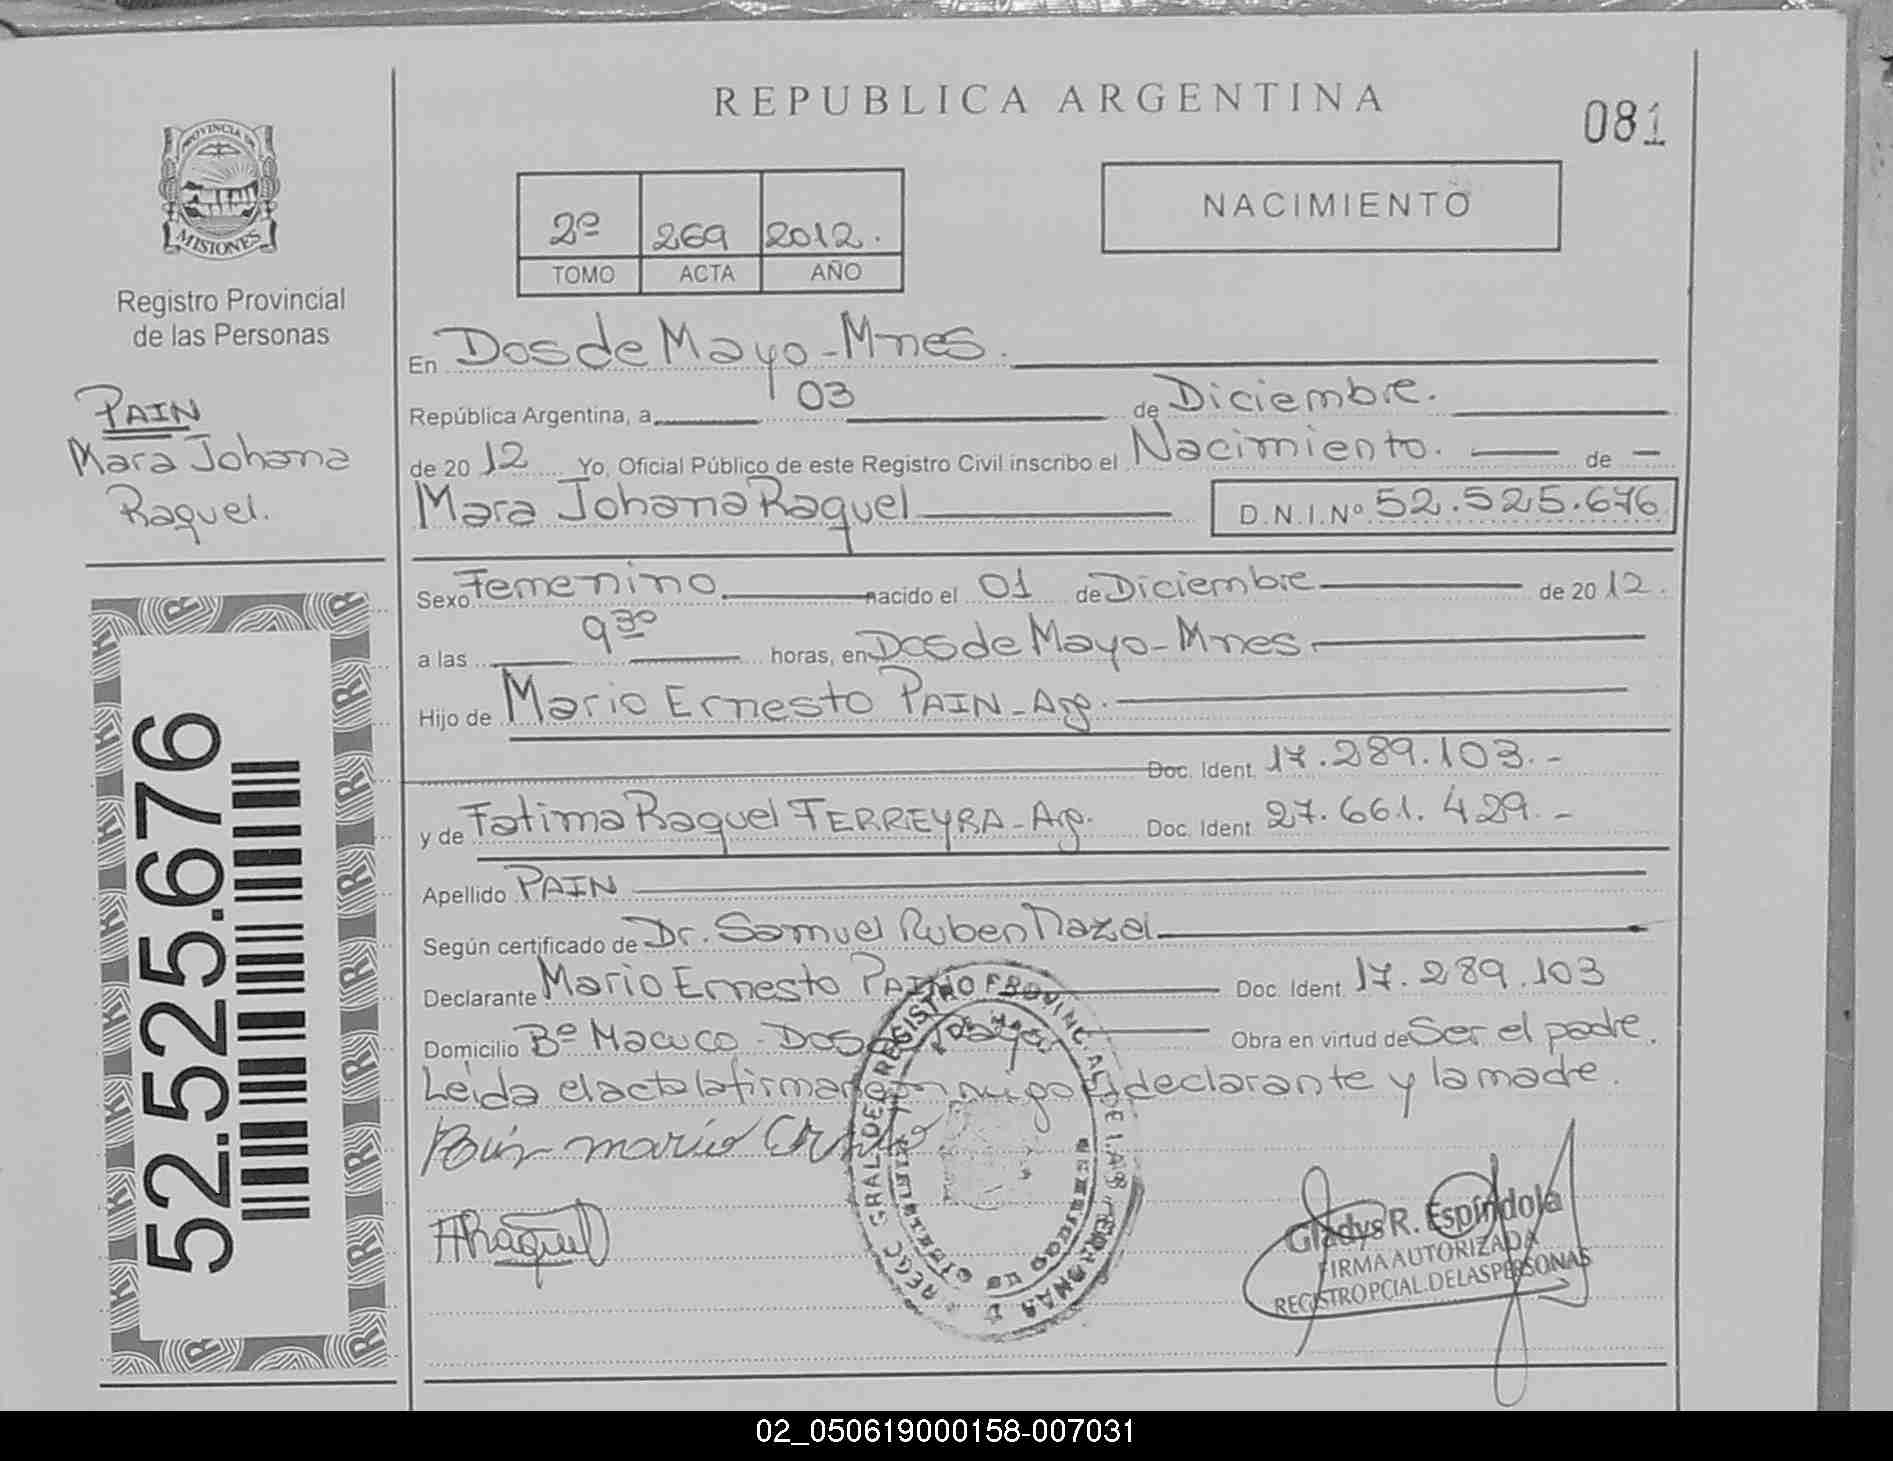 REPUBLICA ARGENTINA
081
PROVINCIA DE
MISIONES
Registro Provincial
de las Personas
2º 269 2012.
TOMO ACTA AÑO
NACIMIENTO
PAIN
Mara Johana
Raquel.
52.525.676
En Dos de Mayo - Mnes.
República Argentina, a 03 de Diciembre.
de 20 12 Yo, Oficial Público de este Registro Civil inscribo el Nacimiento. de
Mara Johana Raquel D.N.I.Nº 52.525.676
Sexo Femenino nacido el 01 de Diciembre de 20 12.
a las 9 30 horas, en Dos de Mayo - Mnes
Hijo de Mario Ernesto PAIN - Arg.
Doc. Ident. 17.289.103.-
y de Fatima Raquel FERREYRA - Arg. Doc. Ident 27.661.429.-
Apellido PAIN
Según certificado de Dr. Samuel Ruben Nazal
Declarante Mario Ernesto PAIN Doc. Ident. 17.289.103
Domicilio Bº Macuco - Dos de Mayo Obra en virtud de Ser el padre.
Leida el acta la firman conmigo el declarante y la madre.
Pain mario Ernesto
FRaquel
Gladys R. Espíndola
FIRMA AUTORIZADA
REGISTRO PCIAL. DE LAS PERSONAS
02_050619000158-007031